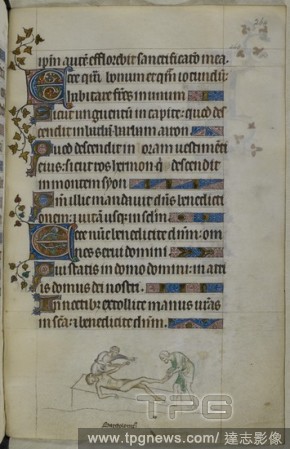 ip̄m aut̄ efflorebit sanctificatio mea.
Ecce qm̄ bonum et qm̄ iocundū
habitare fr̄es in unum
Sicut unguentū in capite: quod des
cendit in barbā barbam aaron
Quod descendit in oram uestimēti
eius: sicut ros hermon qͥ descendit
in montem syon
Qm̄ illic mandauit dn̄s benedicti
onem: ⁊ uitā usq; in sclm̄.
Ecce nūc benedicite dn̄m: om
nes serui domini
Qui statis in domo domini: in atri
is domus dei nostri.
In noctibꝫ extollite manus ur̄as
in sc̄a: ⁊ benedicite dn̄m.
TPG
www.tpgnews.com/達志影像